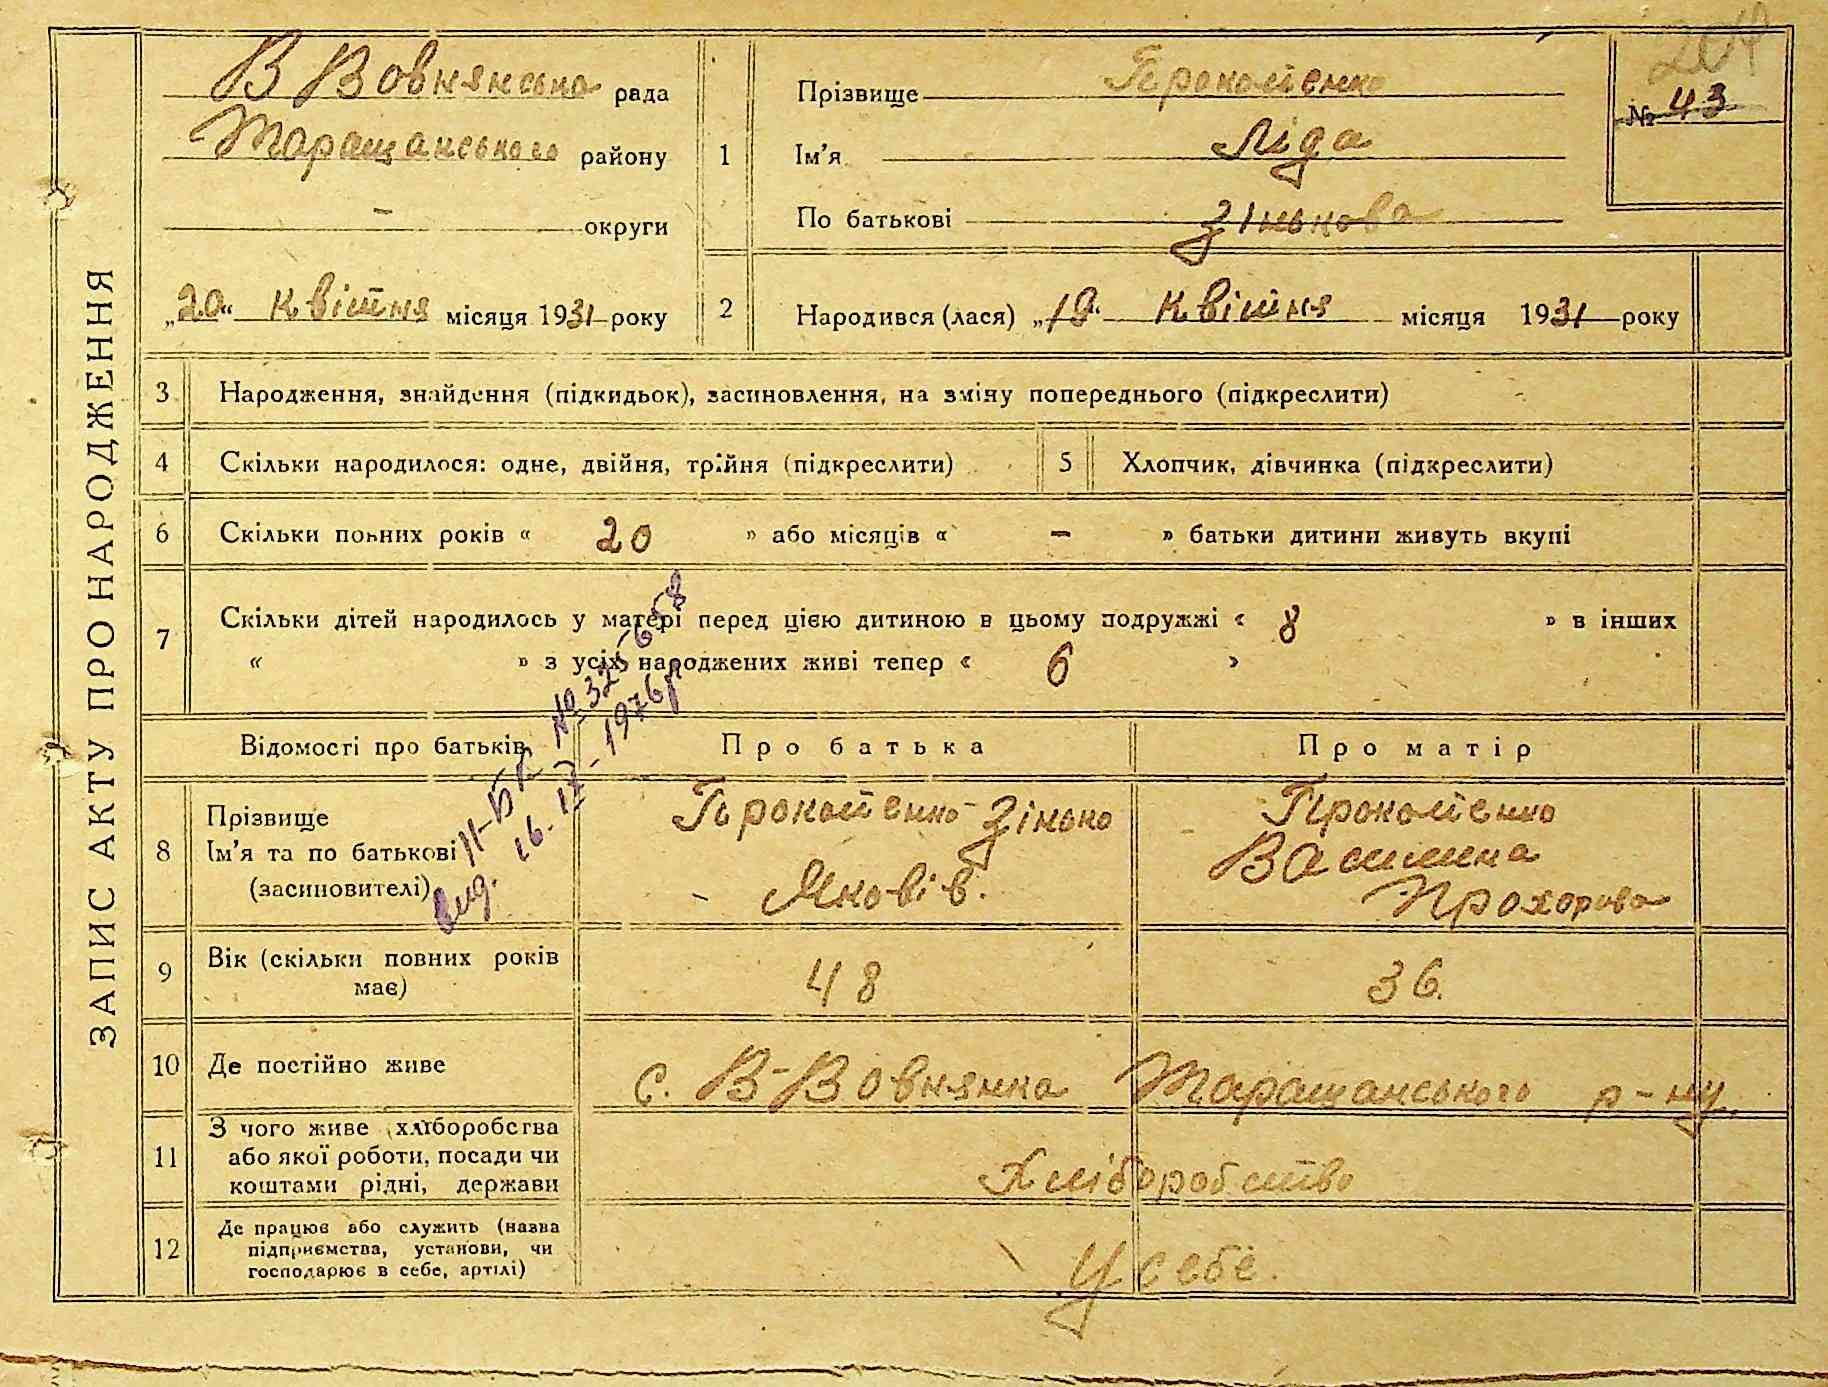 ЗАПИС АКТУ ПРО НАРОДЖЕННЯ
В Вовнянська рада
Таращанського району
– округи
„20“ квітня місяця 1931 року
204
№ 43
1
Прізвище Прокопенко
Ім'я Ліда
По батькові Зінькова
2
Народився (лася) „19“ квітня місяця 1931 року
3 Народження, знайдення (підкидьок), засиновлення, на зміну попереднього (підкреслити)
4 Скільки народилося: одне, двійня, трійня (підкреслити) 5 Хлопчик, дівчинка (підкреслити)
6 Скільки повних років « 20 » або місяців « – » батьки дитини живуть вкупі
7 Скільки дітей народилось у матері перед цією дитиною в цьому подружжі « 8 » в інших
« » з усіх народжених живі тепер « 6 »
Відомості про батьків Про батька Про матір
8 Прізвище
Ім'я та по батькові
(засиновителі)
Прокопенко Зінько
Яковів.
Прокопенко
Василина
Прохорова
вид. ІІ-БК №
16. 1976р
9 Вік (скільки повних років
має)
48 36.
10 Де постійно живе с. В-Вовнянка Таращанського р-ну.
11 З чого живе (хліборобства
або якої роботи, посади чи
коштами рідні, держави
Хліборобство
12 Де працює або служить (назва
підприємства, установи, чи
господарює в себе, артілі)
У себе.